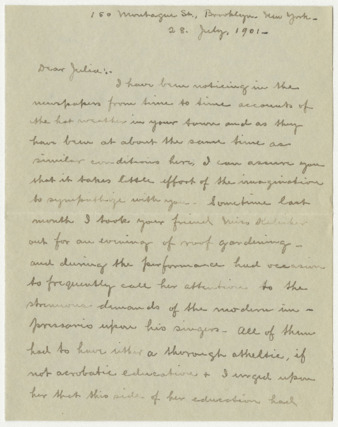 150 Montague St., Brooklyn New York -
28. July, 1901 -
Dear Julia:-
I have been noticing in the
newspapers from time to time accounts of
the hot weather in your town and as they
have been at about the same time as
similar conditions here, I can assure you
that it takes little effort of the imagination
to sympathize with you. Sometime last
month I took your friend Miss
out for an evening of roof gardening -
and during the performance had occasion
to frequently call her attention to the
strenuous demands of the modern im-
pressario upon his singers - All of them
had to have either a thorough atheltic, if
not acrobatic education & I urged upon
her that this side of her education had